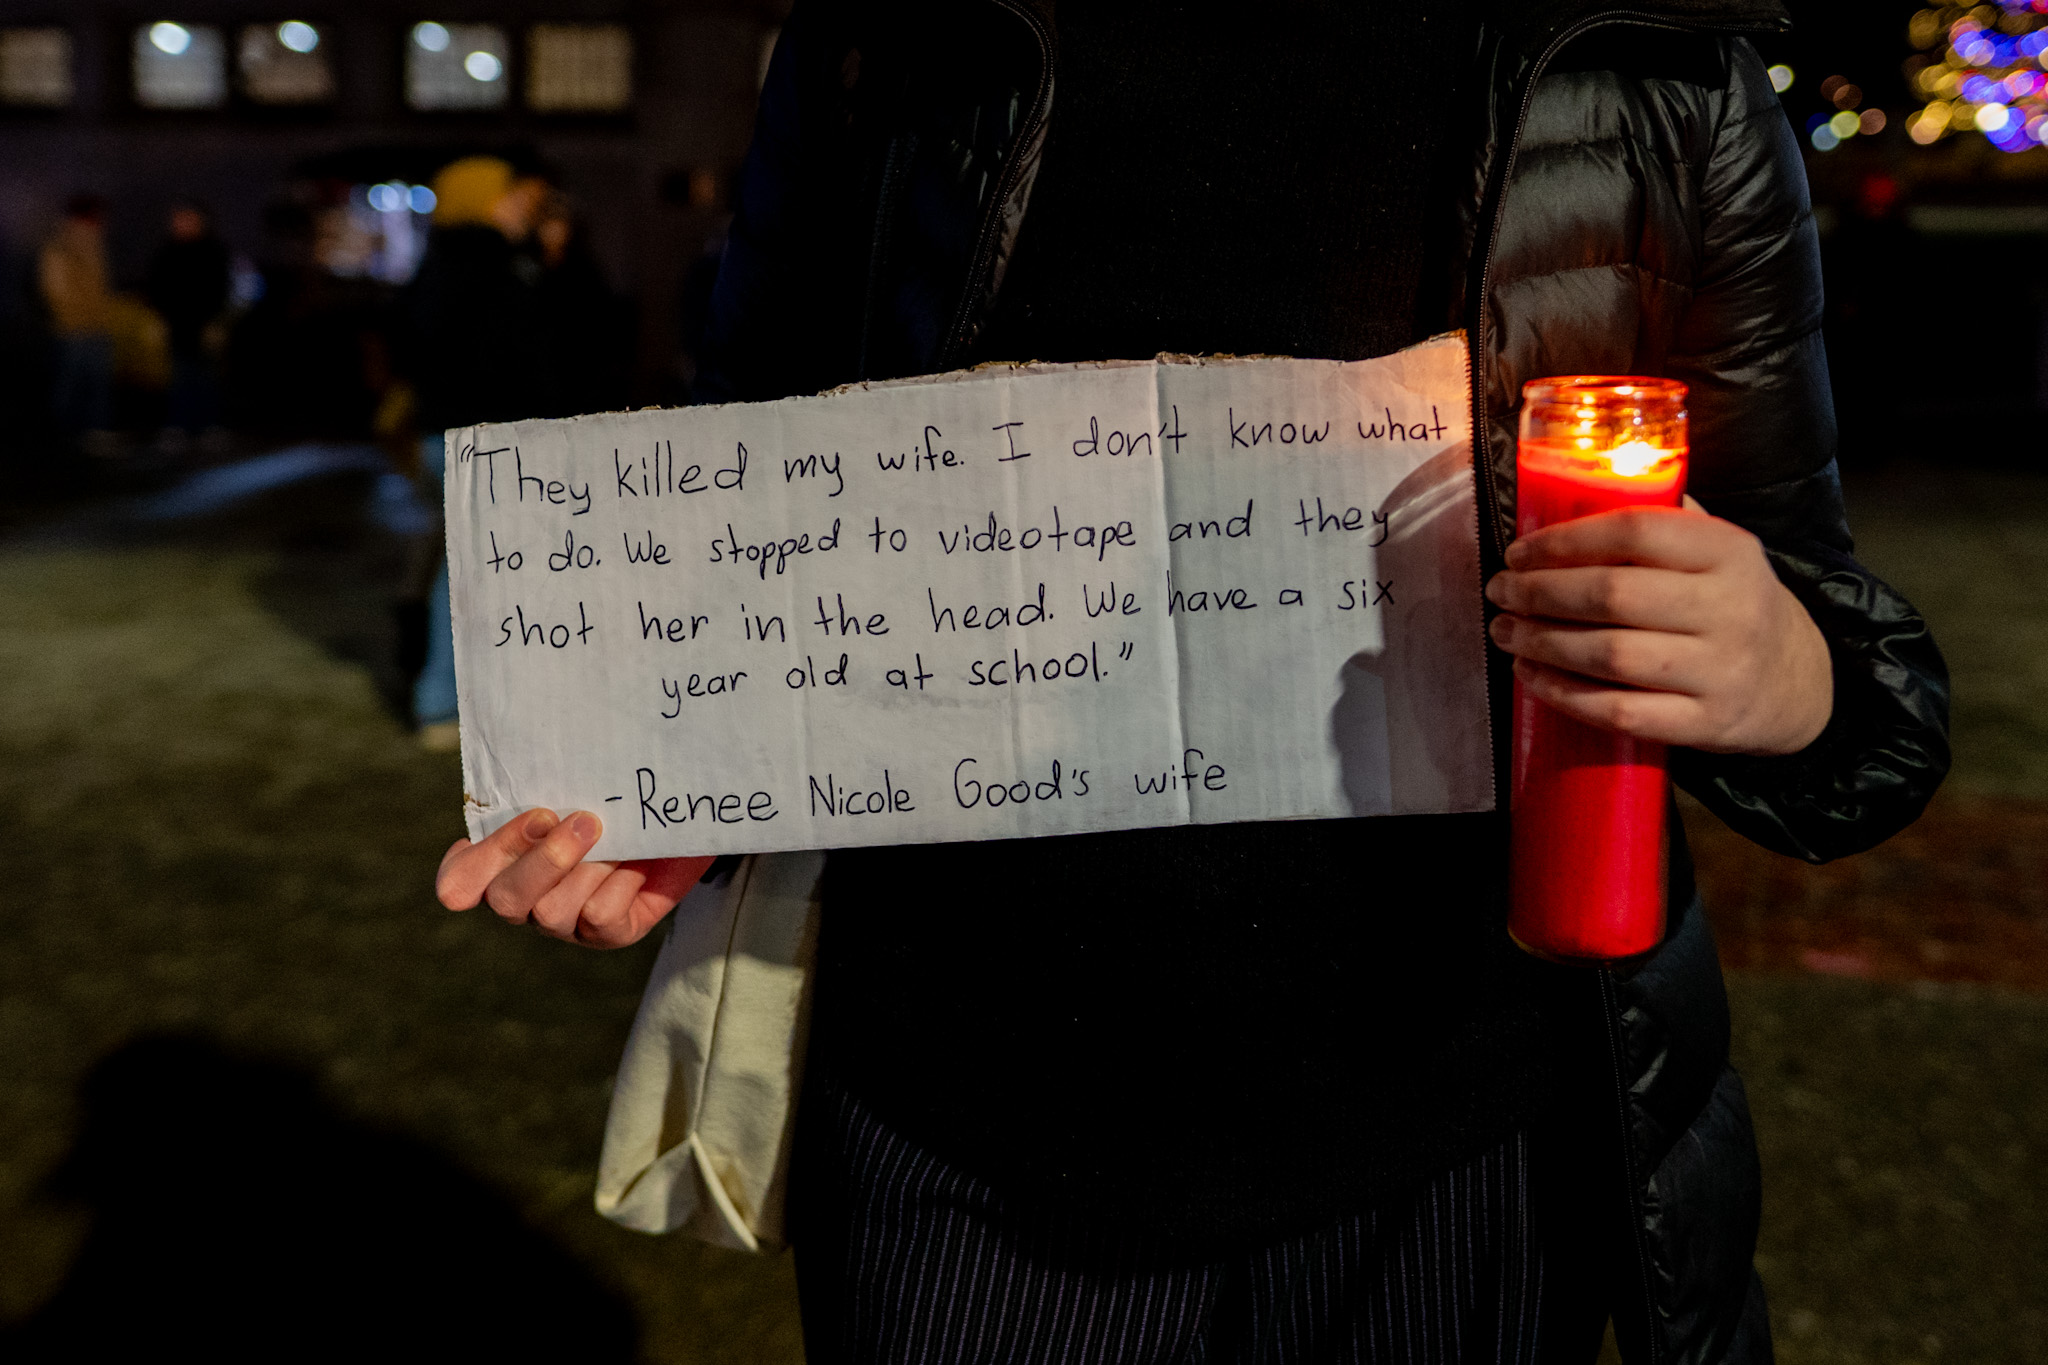 “They killed my wife. I don't know what
to do. We stopped to videotape and they
shot her in the head. We have a six
year old at school.”
-Renee Nicole Good's wife